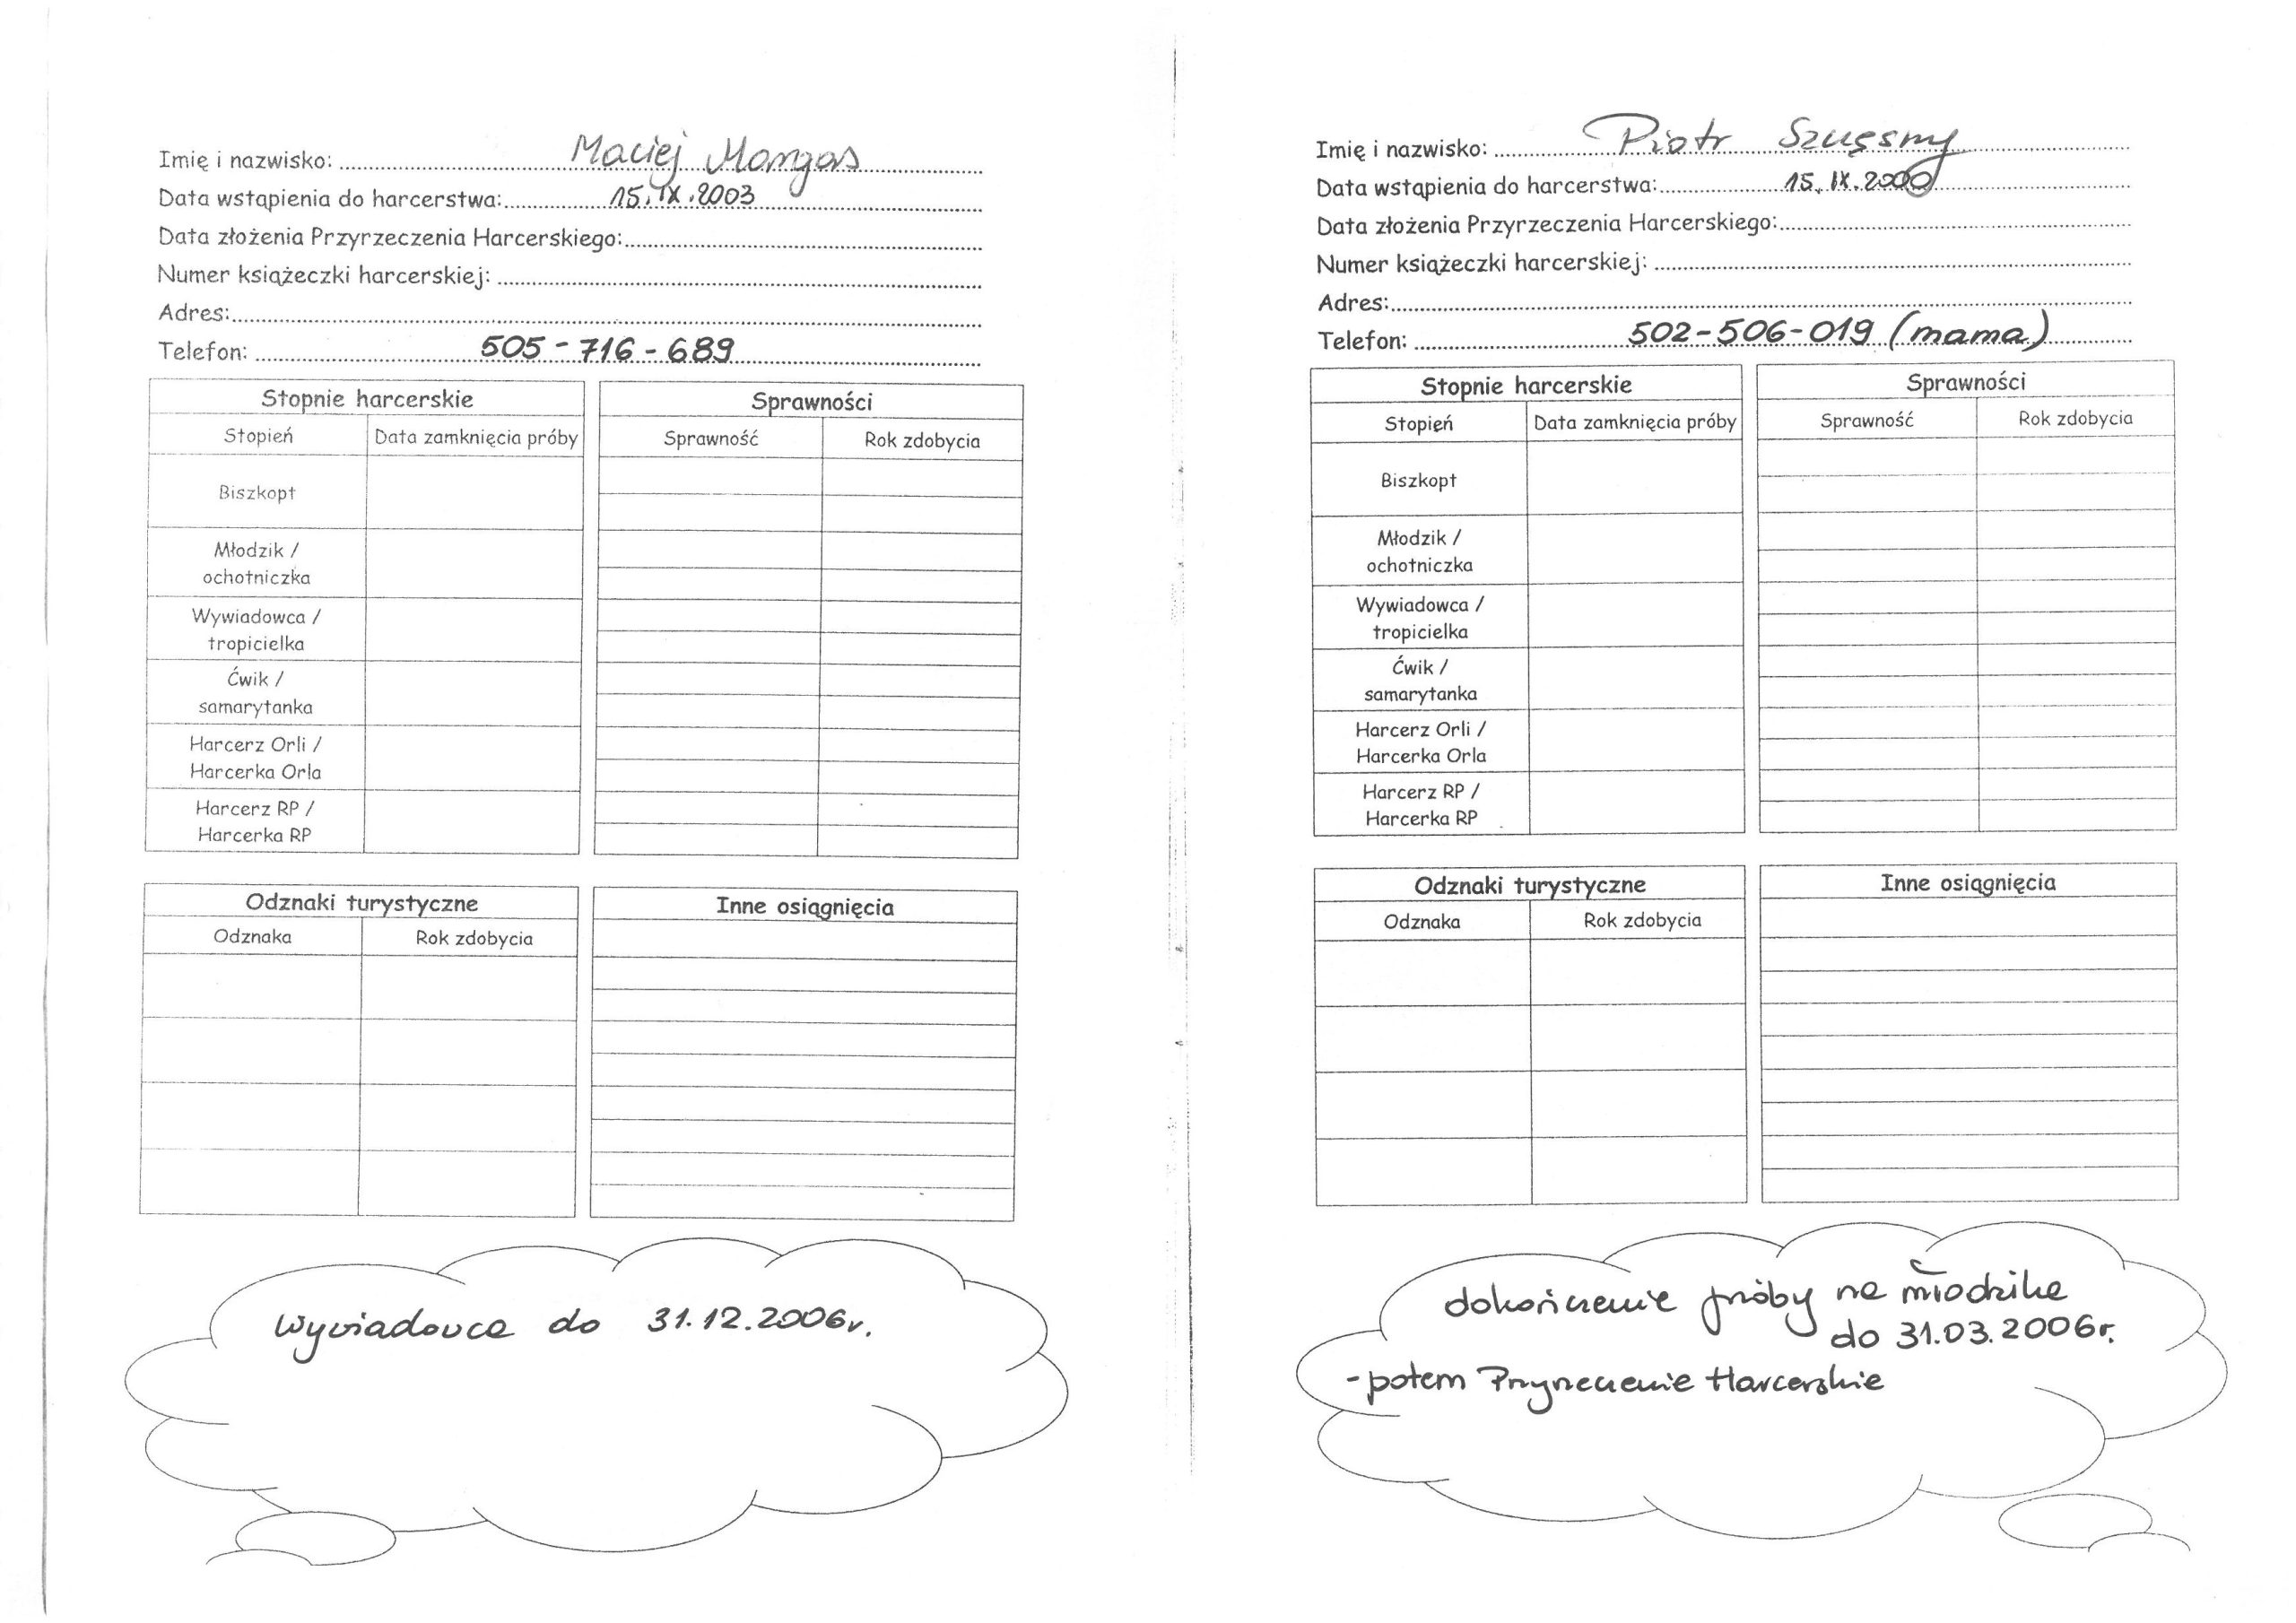 Imię i nazwisko: Maciej Mangas
Data wstąpienia do harcerstwa: 15.IX.2003
Data złożenia Przyrzeczenia Harcerskiego:
Numer książeczki harcerskiej:
Adres:
Telefon: 505-716-689
Stopnie harcerskie
Sprawności
Stopień Data zamknięcia próby
Sprawność Rok zdobycia
Biszkopt
Młodzik /
ochotniczka
Wywiadowca /
tropicielka
Ćwik /
samarytanka
Harcerz Orli /
Harcerka Orla
Harcerz RP /
Harcerka RP
Odznaki turystyczne
Inne osiągnięcia
Odznaka Rok zdobycia
Wywiadowca do 31.12.2006r.
Imię i nazwisko: Piotr
Data wstąpienia do harcerstwa: 15.IX.2000
Data złożenia Przyrzeczenia Harcerskiego:
Numer książeczki harcerskiej:
Adres:
Telefon: 502-506-019 (mama)
Stopnie harcerskie
Sprawności
Stopień Data zamknięcia próby
Sprawność Rok zdobycia
Biszkopt
Młodzik /
ochotniczka
Wywiadowca /
tropicielka
Ćwik /
samarytanka
Harcerz Orli /
Harcerka Orla
Harcerz RP /
Harcerka RP
Odznaki turystyczne
Inne osiągnięcia
Odznaka Rok zdobycia
dokończenie próby na młodzika
do 31.03.2006r.
-potem Przyrzeczenie Harcerskie